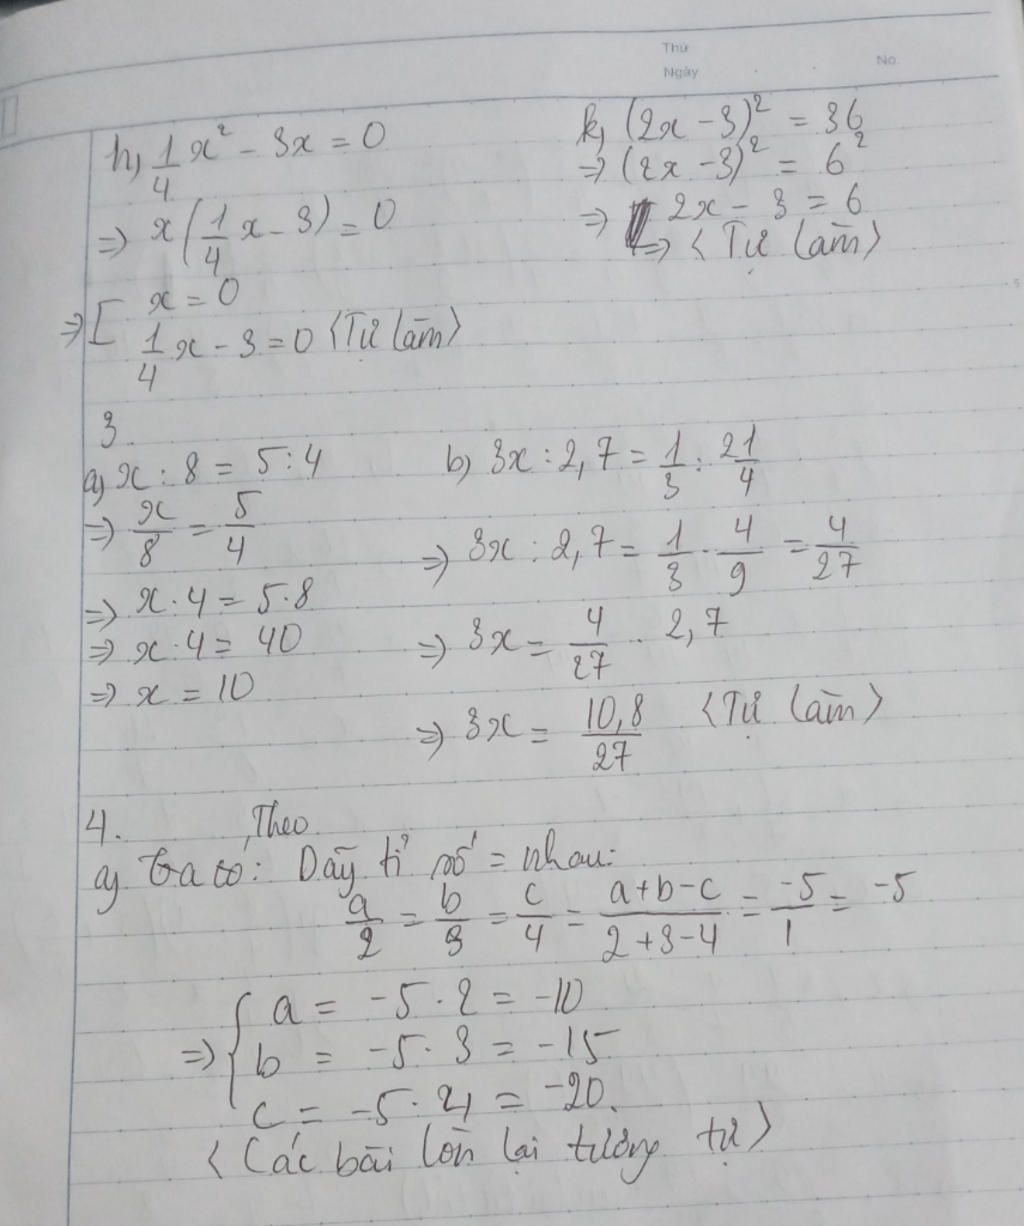 Thứ
Ngày
No.
h, 1/4 x² - 3x = 0
=> x(1/4 x - 3) = 0
=> [ x = 0
1/4 x - 3 = 0 <Tự làm>
k, (2x - 3)² = 36
=> (2x - 3)² = 6²
=> 2x - 3 = 6
=> <Tự làm>
3.
a, x : 8 = 5 : 4
=> x/8 = 5/4
=> x . 4 = 5 . 8
=> x . 4 = 40
=> x = 10
b, 3x : 2,7 = 1/3 : 2 1/4
=> 3x : 2,7 = 1/3 . 4/9 = 4/27
=> 3x = 4/27 . 2,7
=> 3x = 10,8/27 <Tự làm>
4. Theo
a, Ta có: Dãy tỉ số = nhau:
a/2 = b/3 = c/4 = a+b-c/2+3-4 = -5/1 = -5
=> { a = -5 . 2 = -10
b = -5 . 3 = -15
c = -5 . 4 = -20.
<Các bài còn lại tương tự>